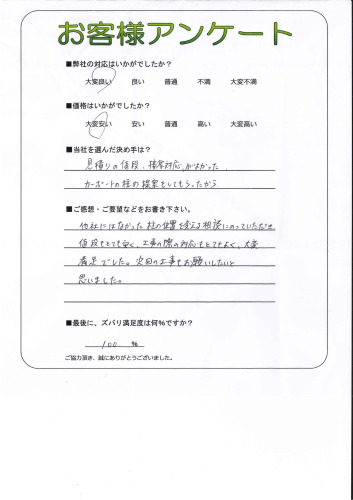 お客様アンケート
■弊社の対応はいかがでしたか？
大変良い 良い 普通 不満 大変不満
■価格はいかがでしたか？
大変安い 安い 普通 高い 大変高い
■当社を選んだ決め手は？
見積りの値段、接客対応がよかった、
カーポートの柱の提案をしてもらったから
■ご感想・ご要望などをお書き下さい。
他社にはなかった柱の位置を変える相談にのっていただき
値段もとても安く、工事の際の対応もとてもよく、大変
満足でした。次回の工事もお願いしたいと
思いました。
■最後に、ズバリ満足度は何%ですか？
100 %
ご協力頂き、誠にありがとうございました。